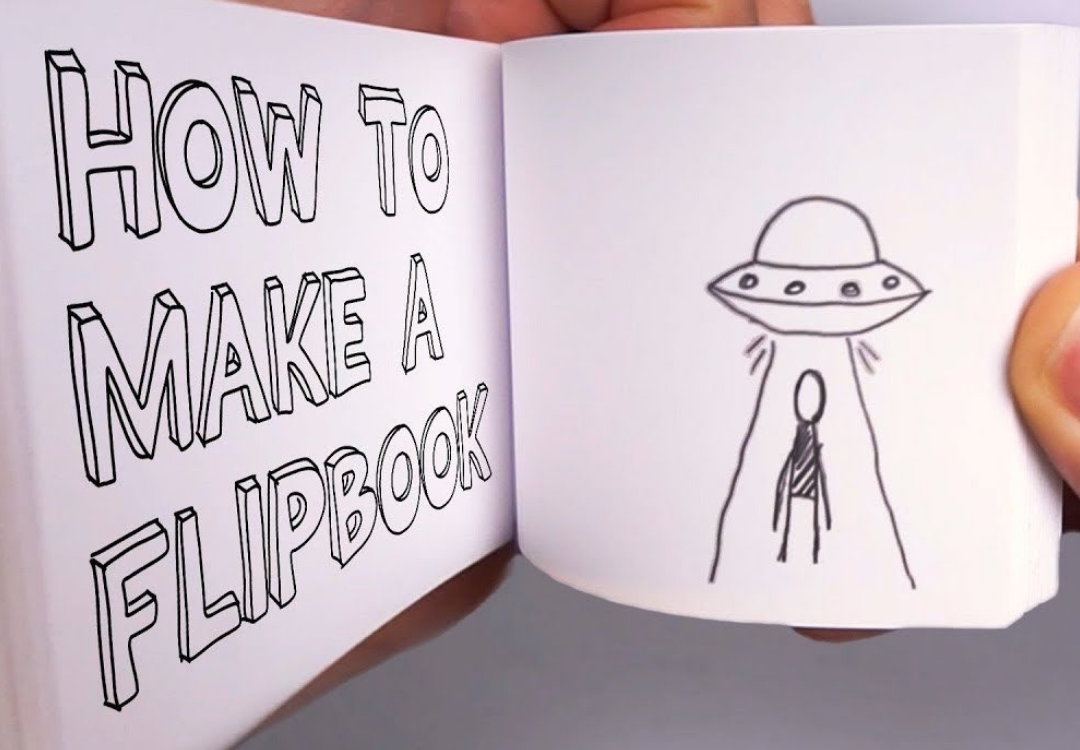 HOW TO
MAKE A
FLIPBOOK